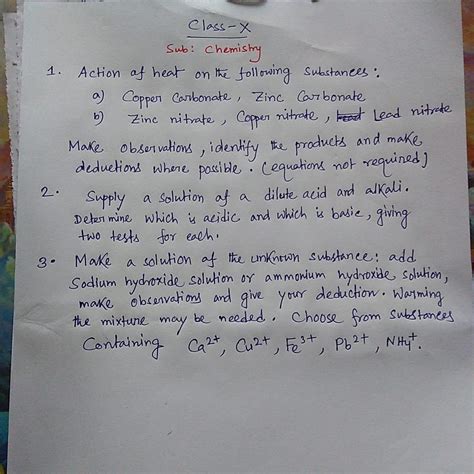 Class-X
Sub: Chemistry
1. Action of heat on the following substances:
a) Copper Carbonate, Zinc Carbonate
b) Zinc nitrate, Copper nitrate, Lead nitrate
Make observations, identify the products and make
deductions where possible. (equations not required)
2. Supply a solution of a dilute acid and alkali.
Determine which is acidic and which is basic, giving
two tests for each.
3. Make a solution of the unknown substance: add
Sodium hydroxide solution or ammonium hydroxide solution,
make observations and give your deduction. Warming
the mixture may be needed. Choose from substances
Containing Ca²⁺, Cu²⁺, Fe³⁺, Pb²⁺, NH₄⁺.